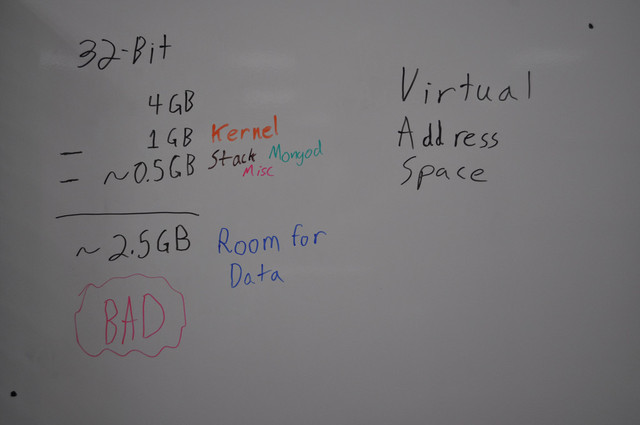 32-Bit
4GB
- 1GB Kernel
- ~0.5GB Stack Mongod
Misc
~2.5GB Room for
Data
BAD
Virtual
Address
Space